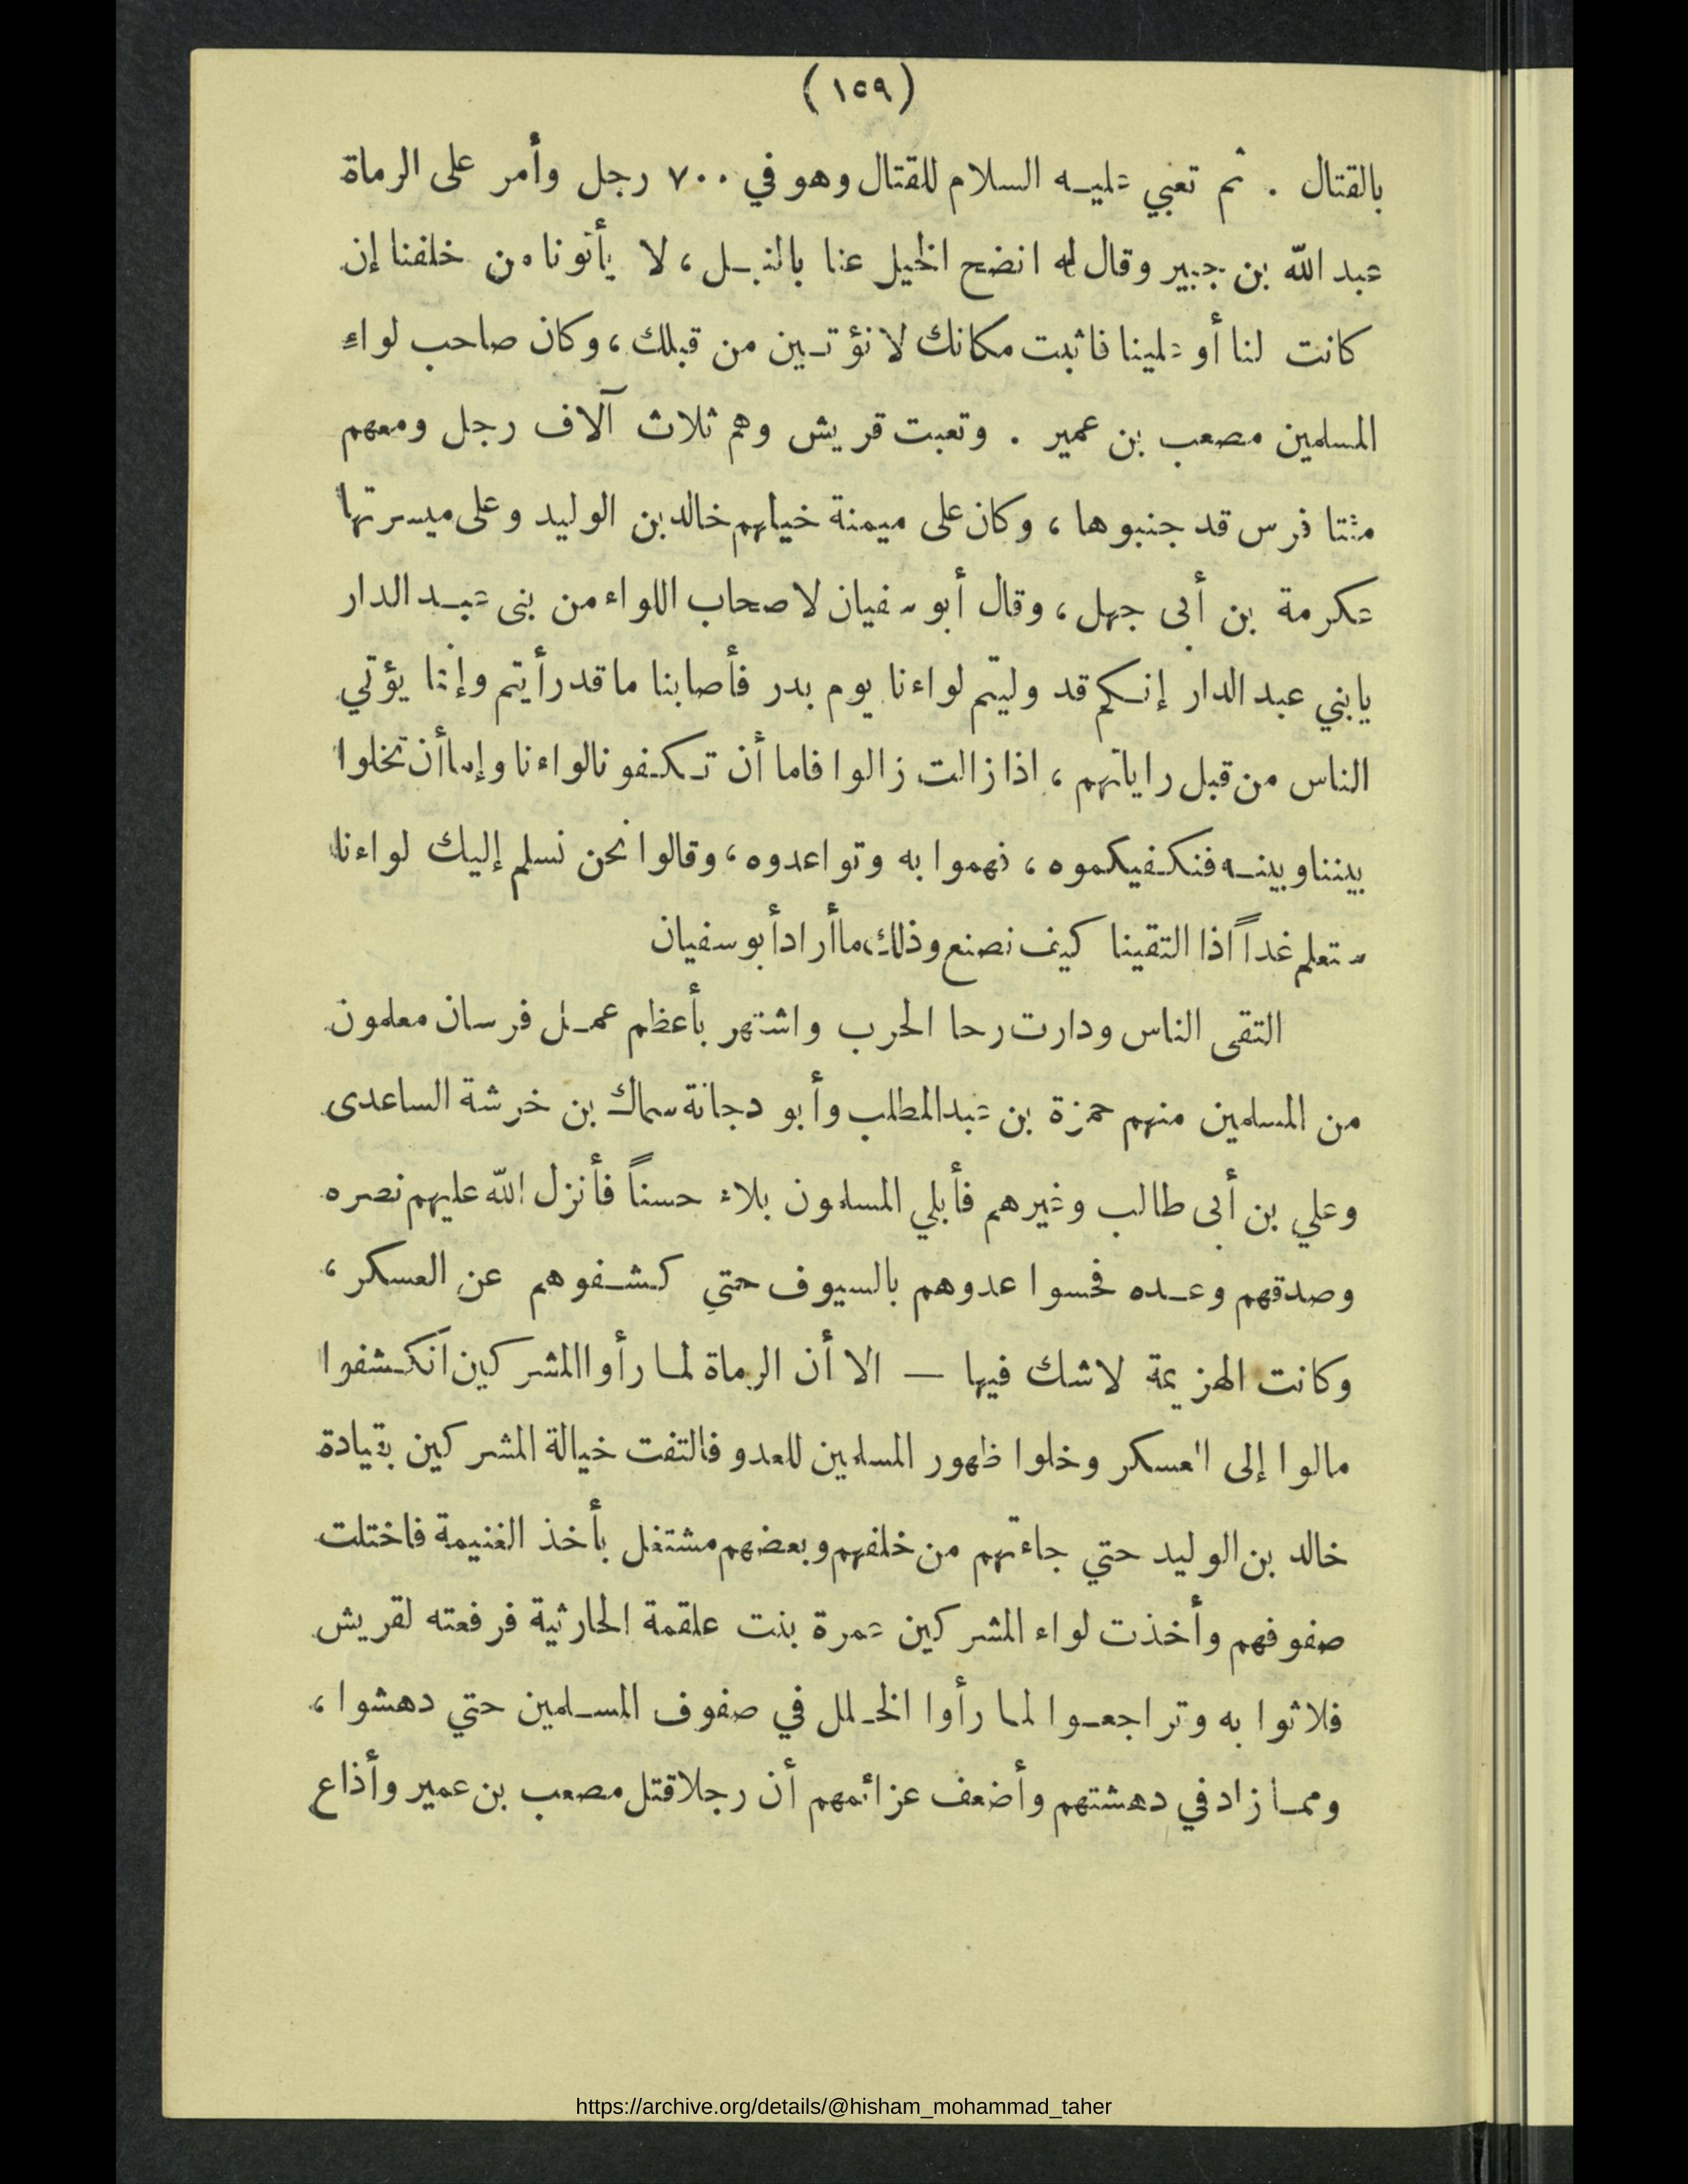 (١٥٩)
بالقتال . ثم تعبي عليه السلام للقتال وهو في ٧٠٠ رجل وأمر على الرماة
عبد الله بن جبير وقال له انضح الخيل عنا بالنبل ، لا يأتونا من خلفنا إن
كانت لنا أو علينا فاثبت مكانك لا نؤتين من قبلك ، وكان صاحب لواء
المسلمين مصعب بن عمير . وتعبت قريش وهم ثلاث آلاف رجل ومعهم
مئتا فرس قد جنبوها ، وكان على ميمنة خيلهم خالد بن الوليد وعلى ميسرتها
عكرمة بن أبى جهل ، وقال أبو سفيان لاصحاب اللواء من بنى عبد الدار
يابني عبد الدار إنكم قد وليتم لواءنا يوم بدر فأصابنا ما قد رأيتم وإنما يؤتي
الناس من قبل راياتهم ، اذا زالت زالوا فاما أن تكفونا لواءنا وإما أن تخلوا
بيننا وبينه فنكفيكموه ، فهموا به وتواعدوه ، وقالوا نحن نسلم إليك لواءنا
ستعلم غداً اذا التقينا كيف نصنع وذلك ما أراد أبو سفيان
التقى الناس ودارت رحا الحرب واشتهر بأعظم عمل فرسان معلمون
من المسلمين منهم حمزة بن عبد المطلب وأبو دجانة سماك بن خرشة الساعدى
وعلي بن أبى طالب وغيرهم فأبلي المسلمون بلاء حسناً فأنزل الله عليهم نصره
وصدقهم وعده فحسوا عدوهم بالسيوف حتي كشفوهم عن العسكر ،
وكانت الهزيمة لاشك فيها — الا أن الرماة لما رأوا المشركين انكشفوا
مالوا إلى العسكر وخلوا ظهور المسلمين للعدو فالتفت خيالة المشركين بقيادة
خالد بن الوليد حتي جاءتهم من خلفهم وبعضهم مشتغل بأخذ الغنيمة فاختلت
صفوفهم وأخذت لواء المشركين عمرة بنت علقمة الحارثية فرفعته لقريش
فلاثوا به وتراجعوا لما رأوا الخلل في صفوف المسلمين حتي دهشوا ،
ومما زاد في دهشتهم وأضعف عزائمهم أن رجلا قتل مصعب بن عمير وأذاع
https://archive.org/details/@hisham_mohammad_taher